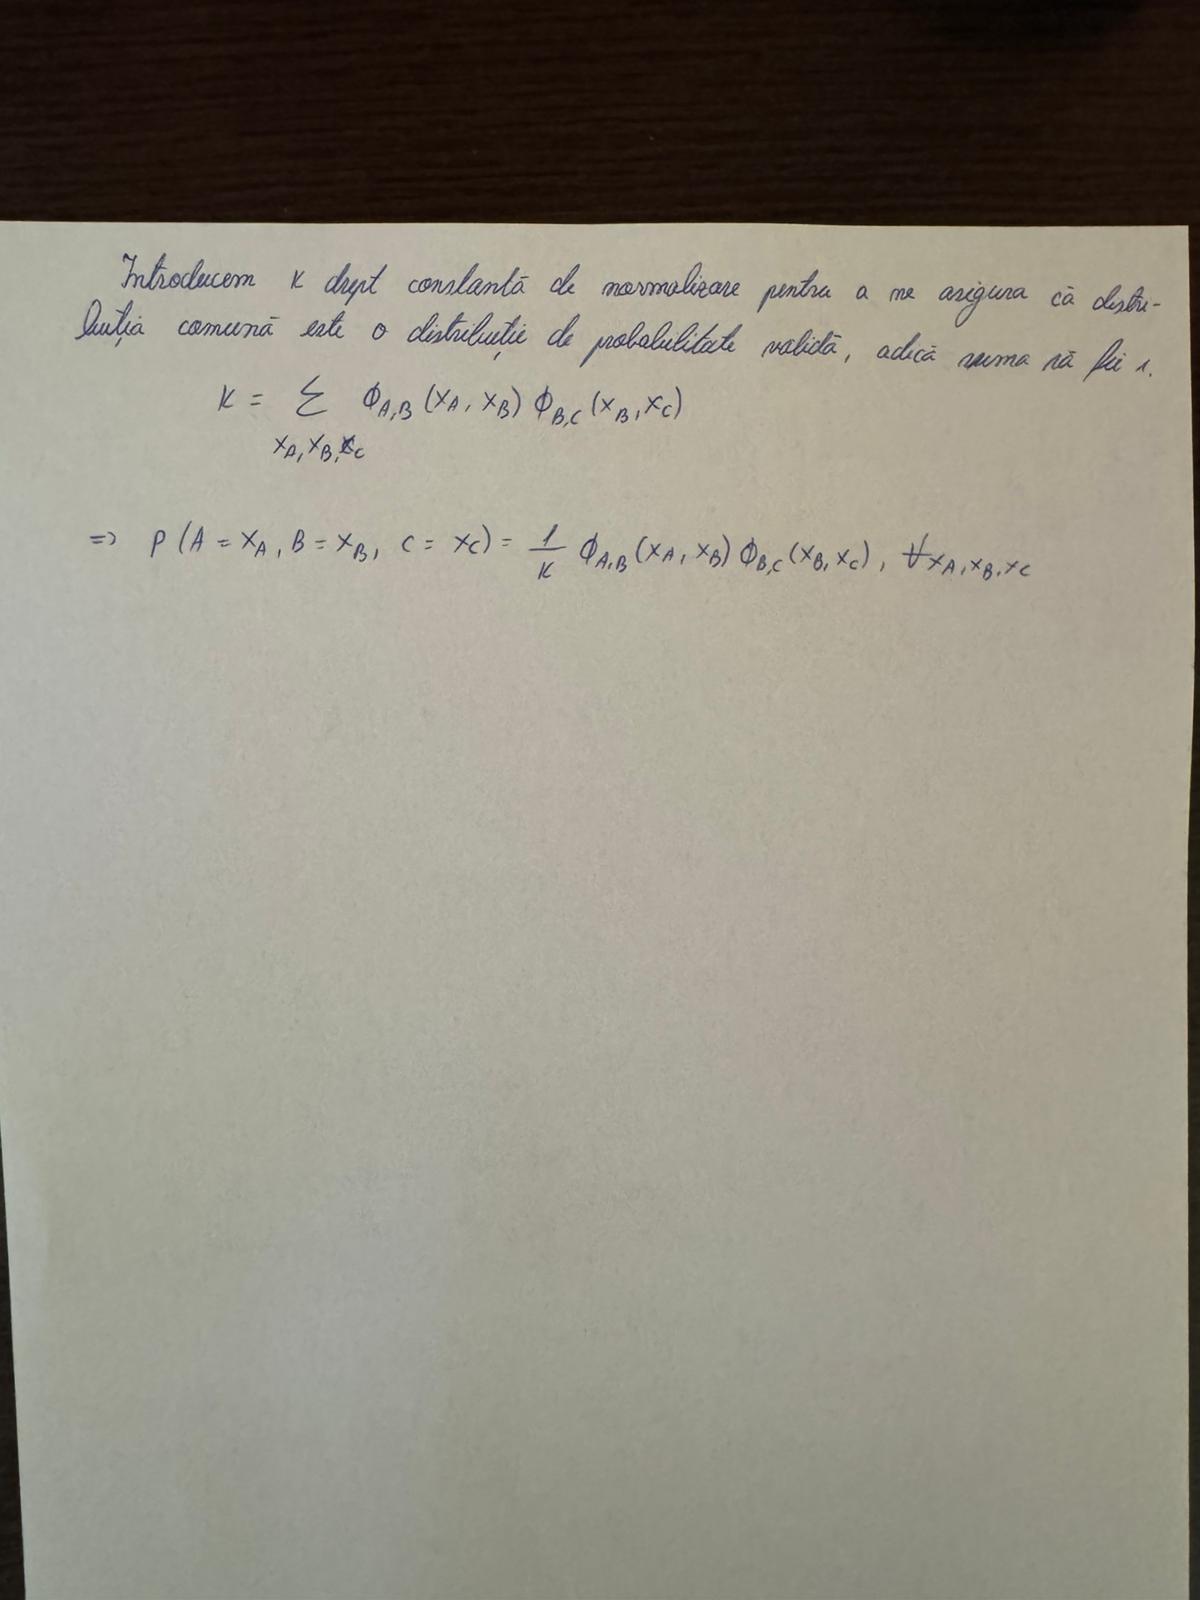 Introducem K drept constantă de normalizare pentru a ne asigura că distri-
buția comună este o distribuție de probabilitate validă, adică suma să fie 1.
K = Σ ϕ_{A,B} (x_A, x_B) ϕ_{B,C} (x_B, x_C)
x_A, x_B, x_C
=> P(A = x_A, B = x_B, C = x_C) = 1/K ϕ_{A,B} (x_A, x_B) ϕ_{B,C} (x_B, x_C), ∀ x_A, x_B, x_C